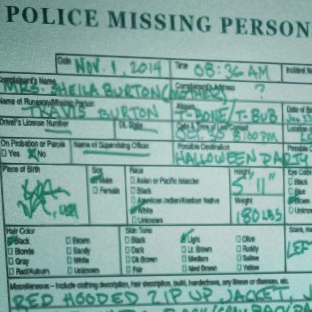 POLICE MISSING PERSON
Date NOV. 1, 2014 Time 08:36 AM Incident
Complainant's Name Complainant's
MRS. SHEILA BURTON (MOTHER) ?
Name of Runaway/Missing Person Aliases Date of
TRAVIS BURTON T-BONE/T-BUB
Driver's License Number DL State Date & Time of Last Contact Location
8:00 PM
On Probation or Parole Name of Supervising Officer Possible Destination
Yes No HALLOWEEN PARTY
Place of Birth Sex Race Height Eye
Male Asian or Pacific Islander 5'11" Black
Female Black Blue
American Indian/Alaskan Native Weight Brown
USA White 180 LBS Green
Unknown
Hair Color Skin Tone Scars,
Black Brown Black Light Olive LEF
Blonde Sandy Dark Lt Brown Ruddy
Gray White Dk Brown Medium Sallow
Red/Auburn Unknown Fair Med Brown Yellow
Miscellaneous - Include clothing description, hair description, build, handedness, any illness or diseases, etc.
RED HOODED ZIP UP JACKET, J